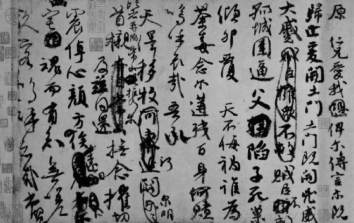 仁兄愛我俾爾傳言爾既
歸止爰開土門土門既開凶威
大蹙賊臣擁衆不救賊臣不救
孤城圍逼父陷子死巢
傾卵覆天不悔禍誰為
荼毒念爾遘殘百身何贖
嗚乎哀哉吾承
天澤移牧河關泉明
比者再陷常山攜爾
首櫬及茲同還撫念摧切
震悼心顏方俟遠日
魂而有知無嗟
久客嗚呼哀哉尚饗